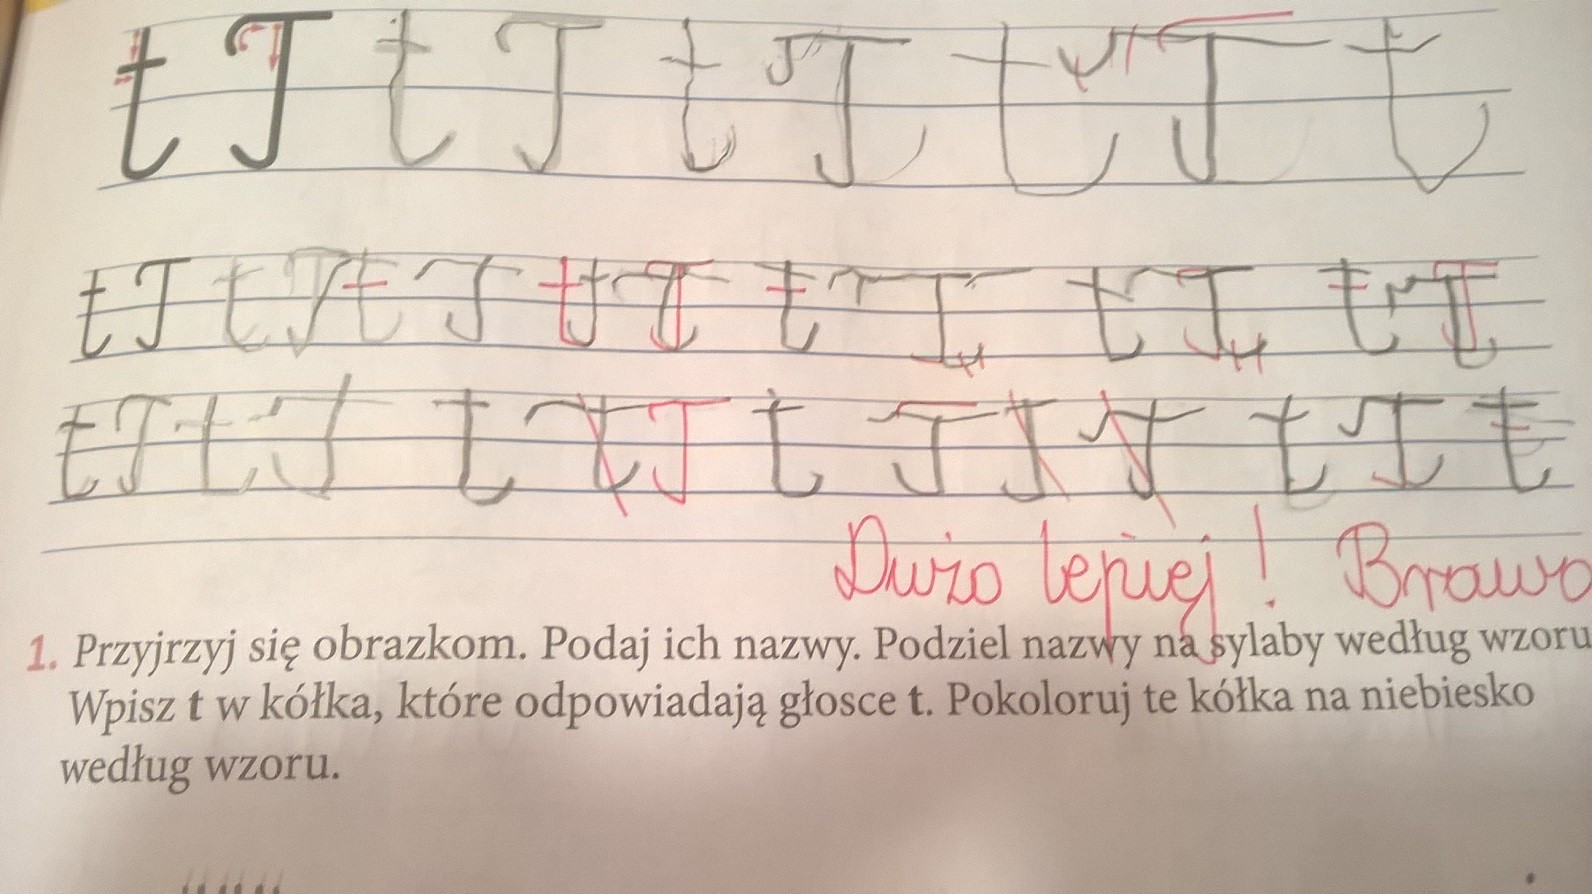 t T t T t T t T t
t T t T t T t T t T t T t T
t T t T t t T t T T T t T t
Dużo lepiej! Brawo
1. Przyjrzyj się obrazkom. Podaj ich nazwy. Podziel nazwy na sylaby według wzoru
Wpisz t w kółka, które odpowiadają głosce t. Pokoloruj te kółka na niebiesko
według wzoru.